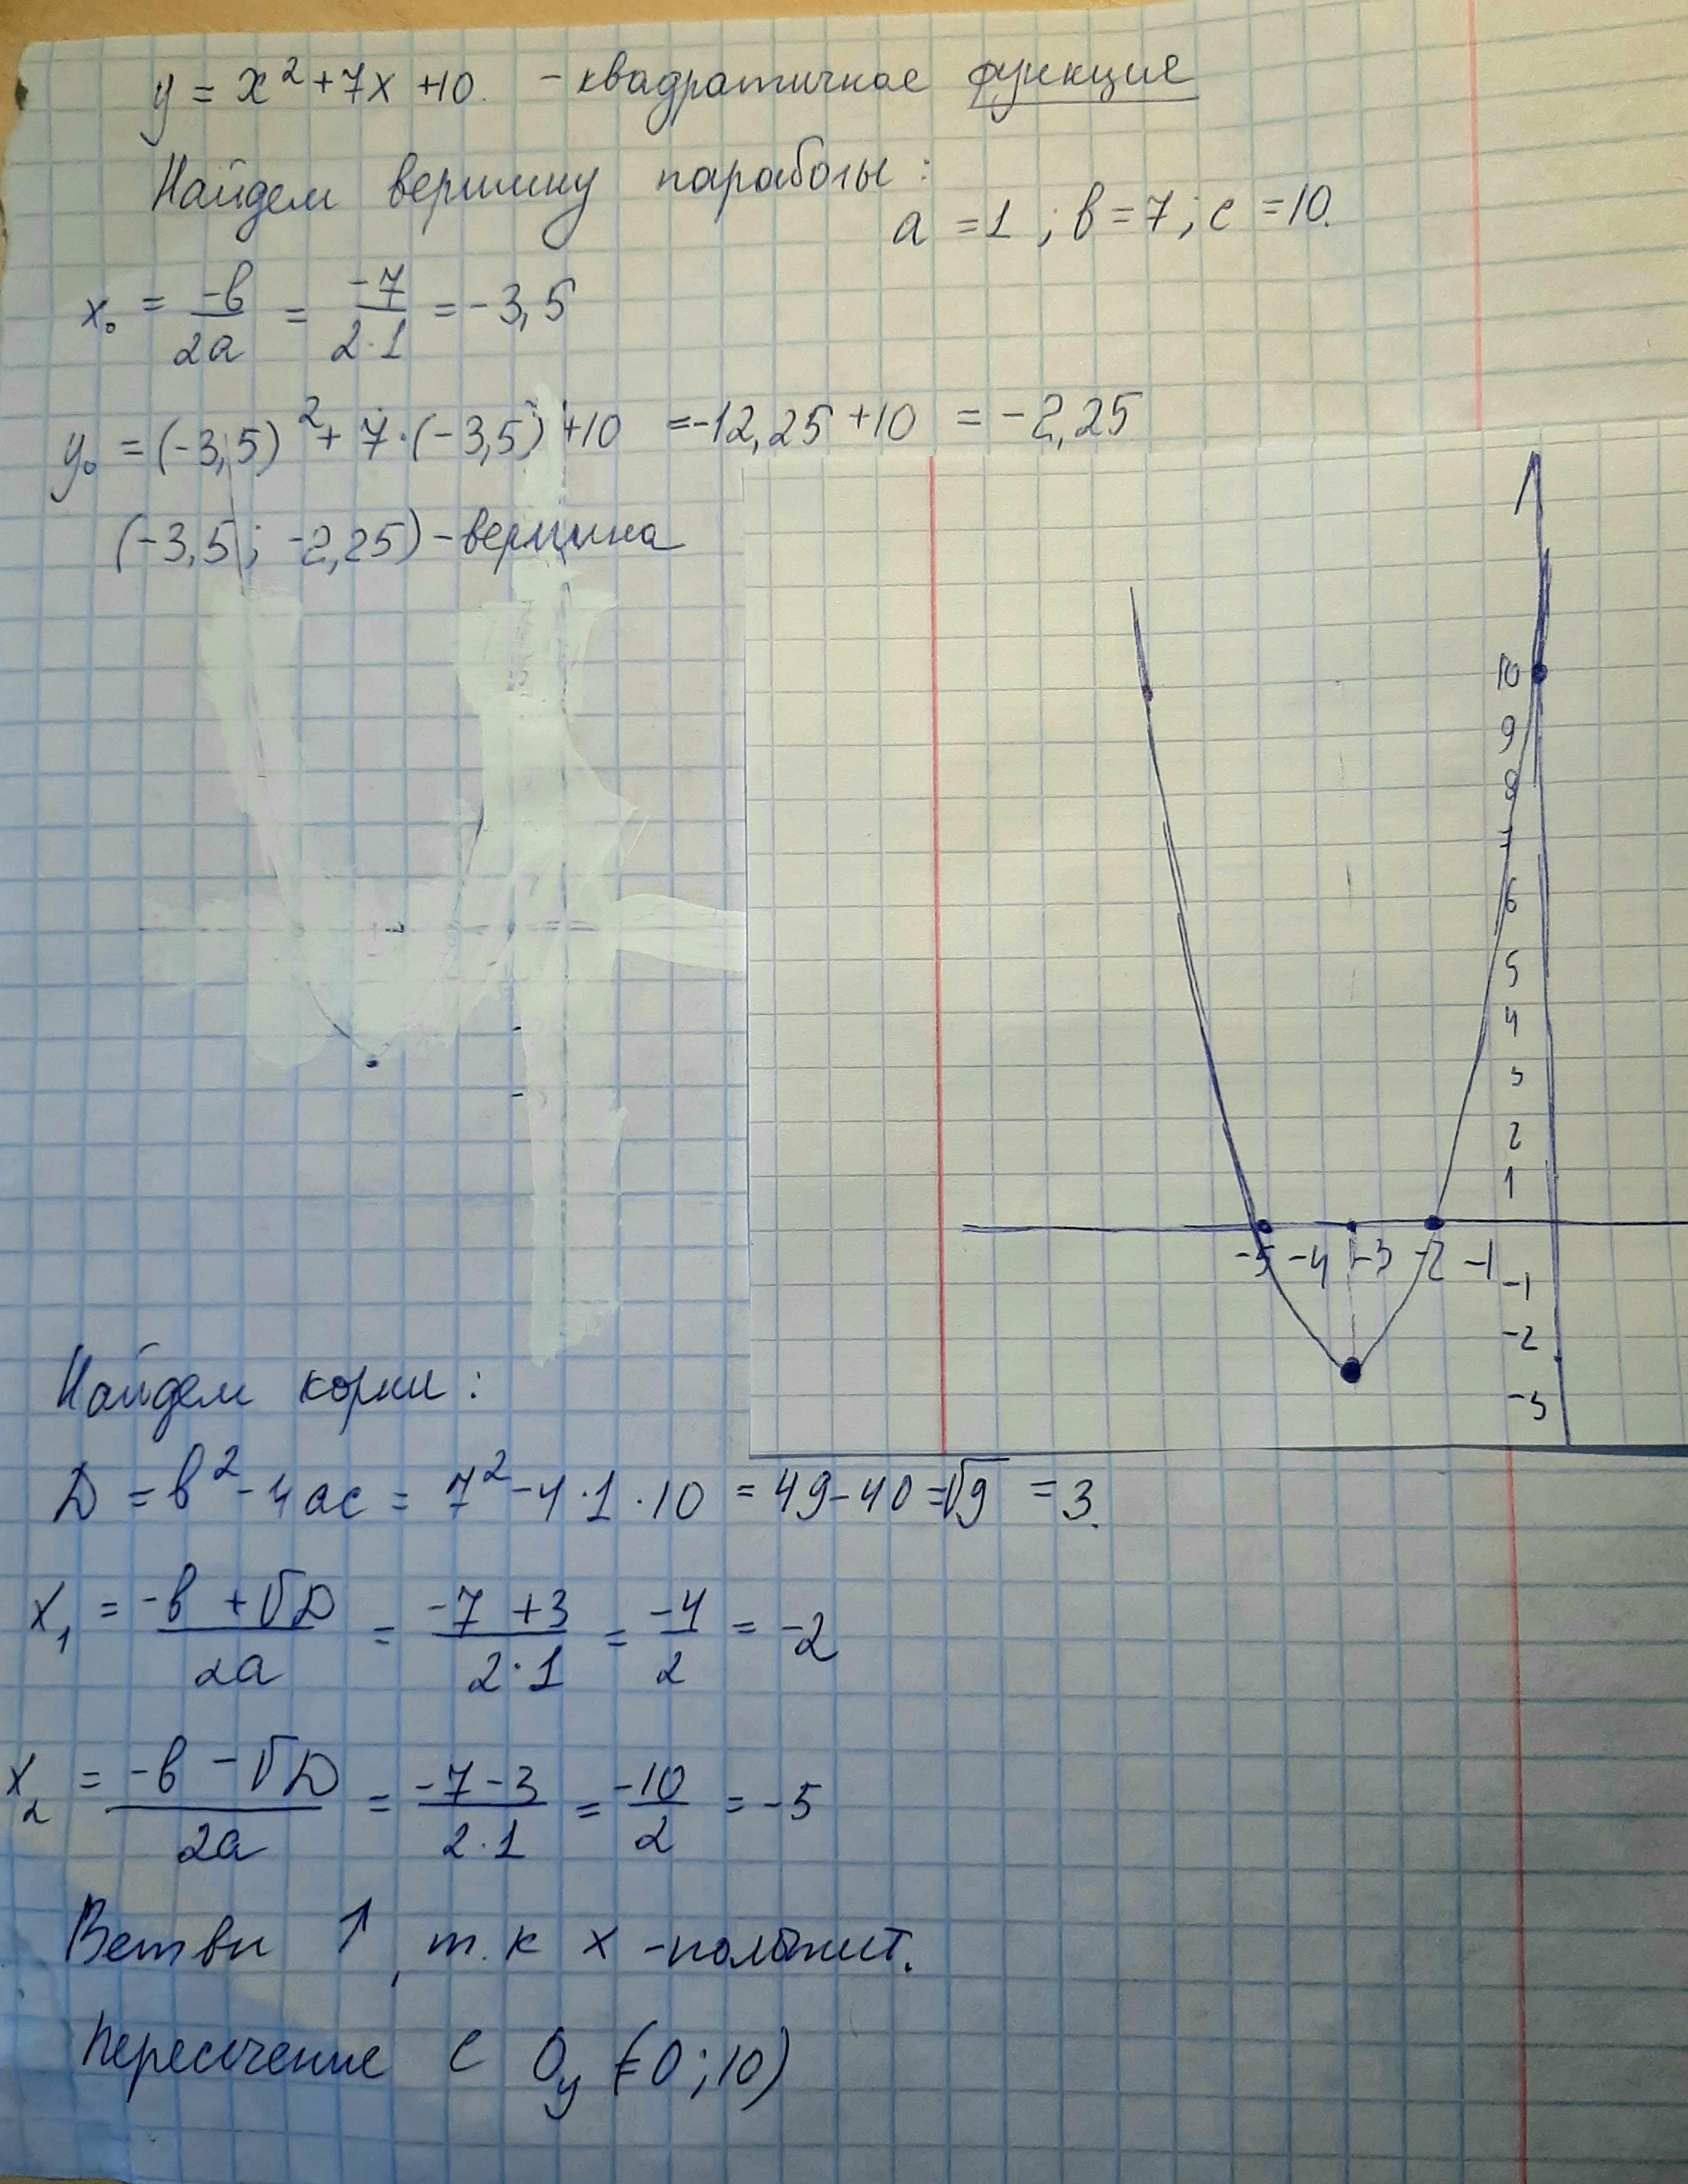 y = x² + 7x + 10. - квадратичная функция
Найдем вершину параболы:
a = 1 ; в = 7 ; c = 10.
x₀ = -в/2a = -7/2·1 = -3,5
y₀ = (-3,5)² + 7·(-3,5) + 10 = -12,25 + 10 = -2,25
(-3,5 ; -2,25) - вершина
10
9
8
7
6
5
4
3
2
1
-5 -4 -3 -2 -1
-1
-2
-3
Найдем корни:
D = в² - 4ac = 7² - 4·1·10 = 49 - 40 = √9 = 3.
x₁ = -в + √D/2a = -7 + 3/2·1 = -4/2 = -2
x₂ = -в - √D/2a = -7 - 3/2·1 = -10/2 = -5
Ветви ↑, т.к x - положит.
Пересечение с Oy (0 ; 10)